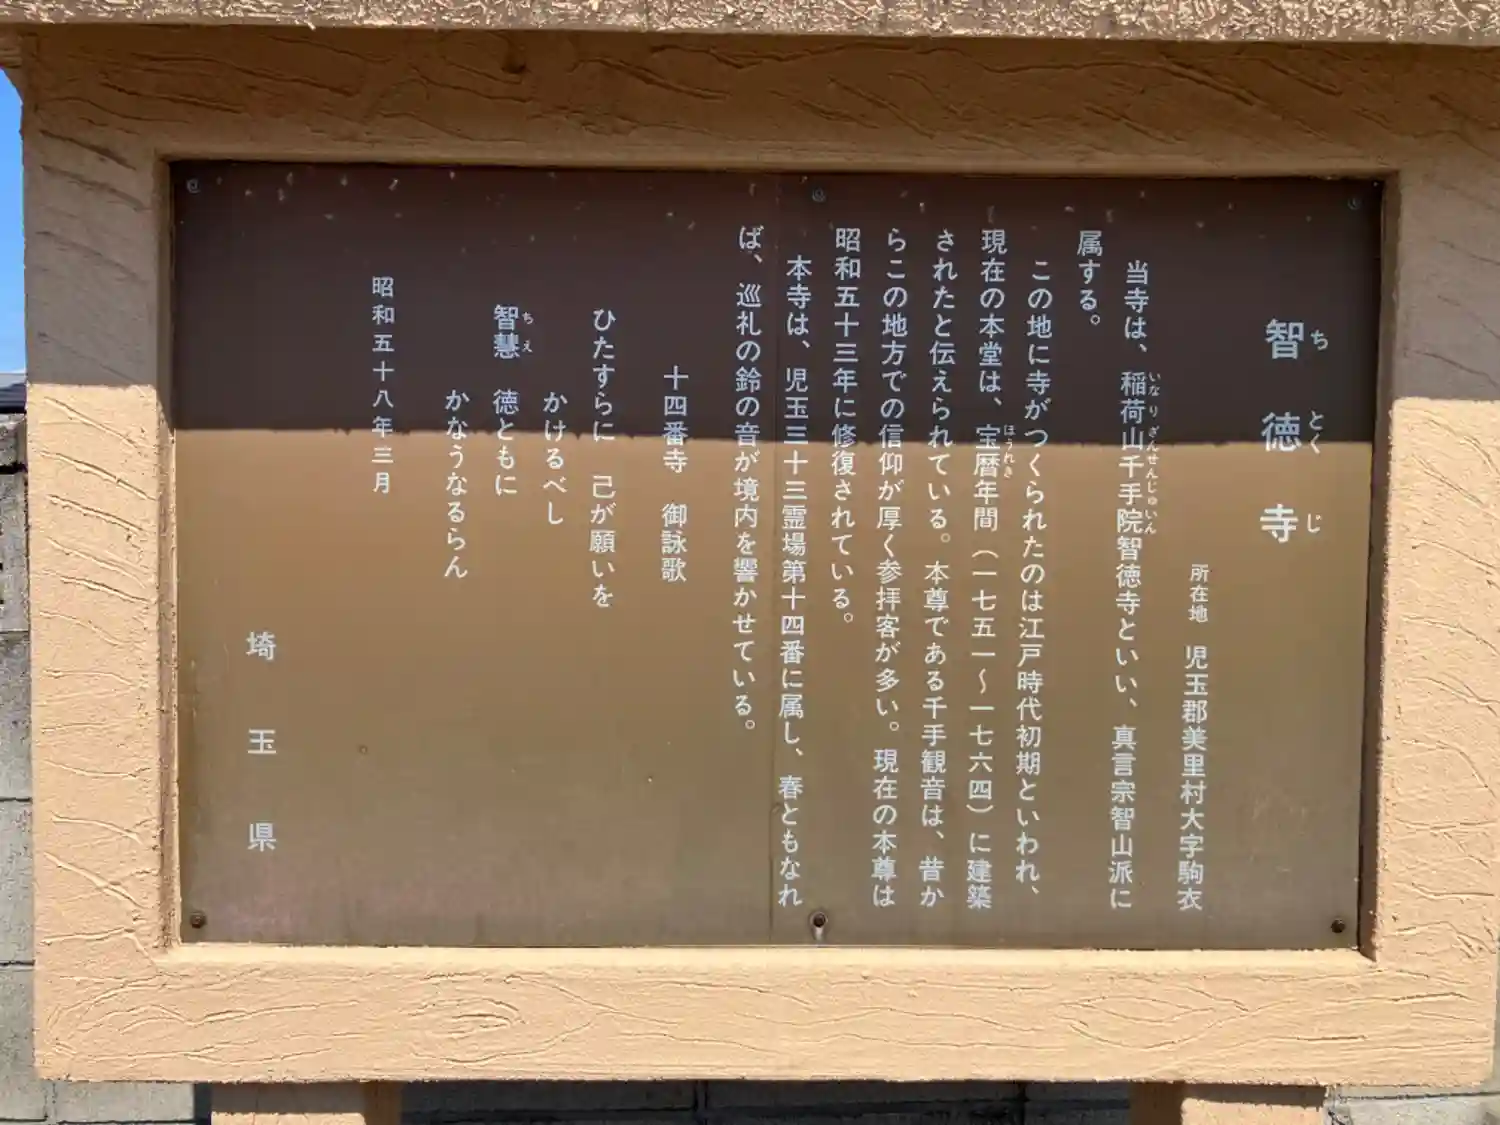 智徳寺
ちとくじ
所在地 児玉郡美里村大字駒衣
当寺は、稲荷山千手院智徳寺といい、真言宗智山派に
いなりざんせんじゅいん
属する。
この地に寺がつくられたのは江戸時代初期といわれ、
現在の本堂は、宝暦年間（一七五一～一七六四）に建築
ほうれき
されたと伝えられている。本尊である千手観音は、昔か
らこの地方での信仰が厚く参拝客が多い。現在の本尊は
昭和五十三年に修復されている。
本寺は、児玉三十三霊場第十四番に属し、春ともなれ
ば、巡礼の鈴の音が境内を響かせている。
十四番寺 御詠歌
ひたすらに 己が願いを
かけるべし
智慧 徳ともに
ちえ
かなうなるらん
昭和五十八年三月
埼玉県